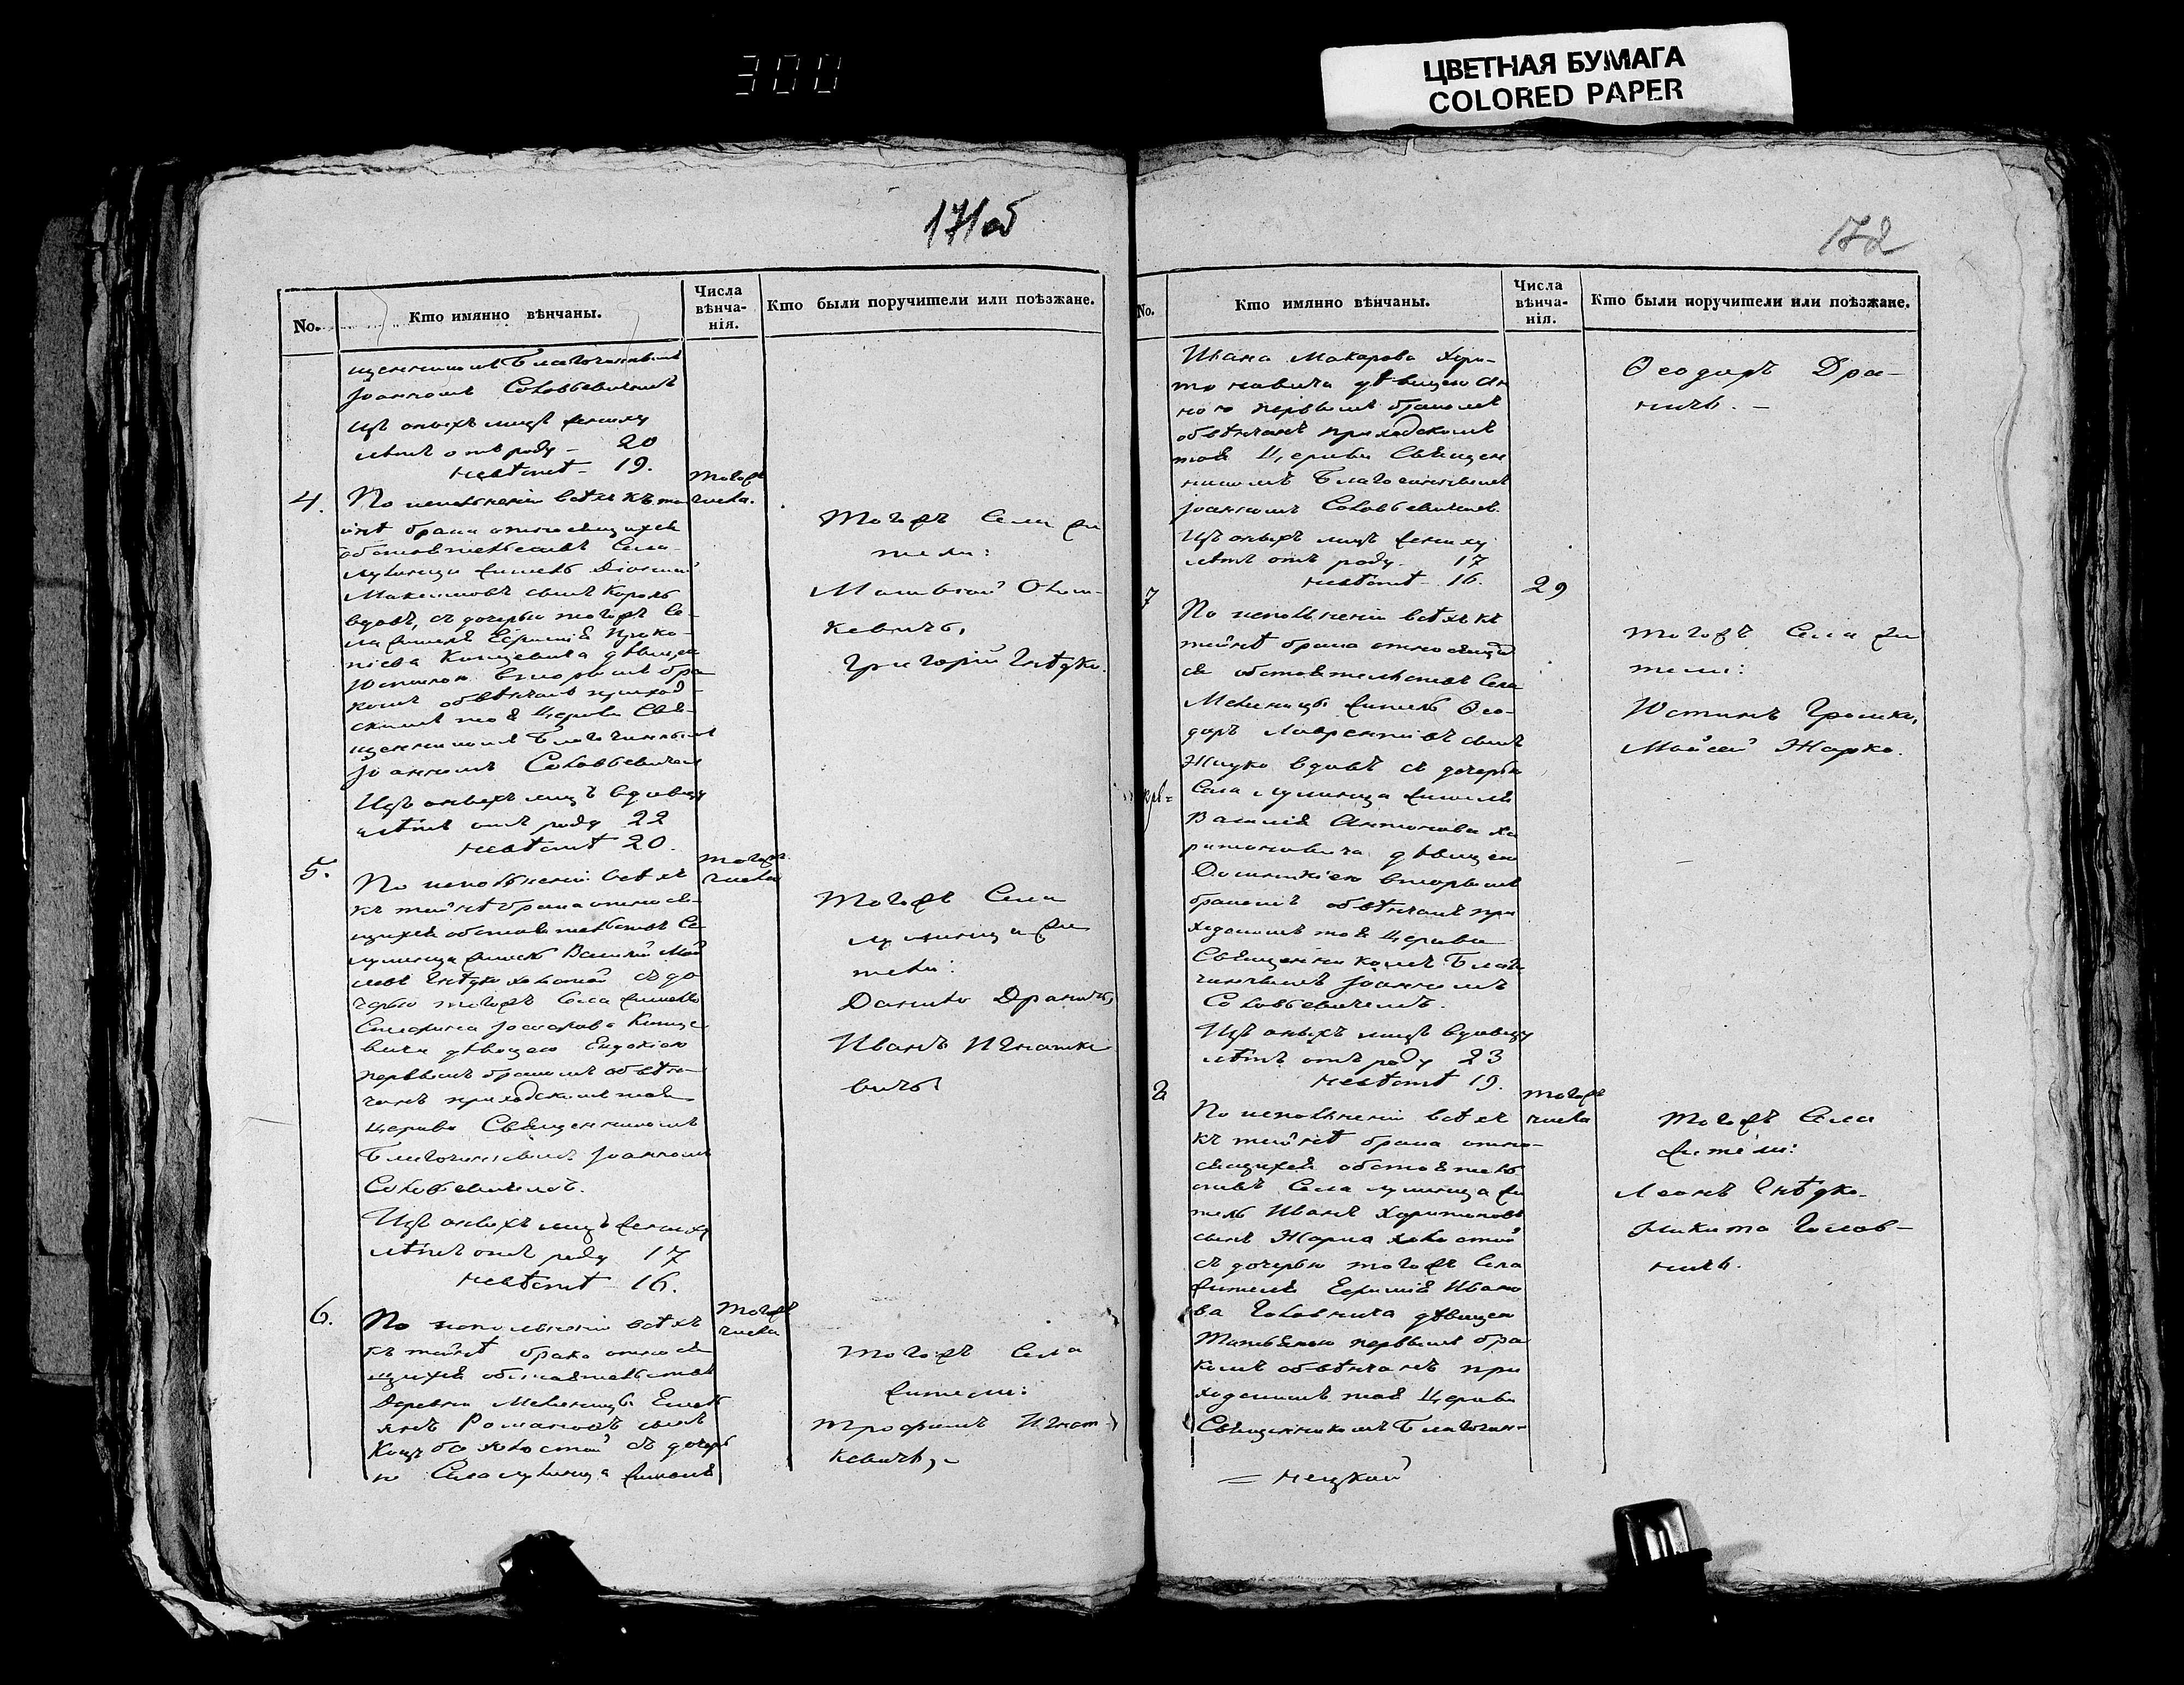 300
ЦВЕТНАЯ БУМАГА
COLORED PAPER
171об
No.
Кто имянно вѣнчаны.
Числа
вѣнча-
нія.
Кто были поручители или поѣзжане.
щенникомъ Благочиннымъ
Іоанномъ Соловьевичемъ
Изъ оныхъ лицъ жениху
лѣтъ отъ роду - 20
невѣстѣ - 19.
4.
По исполненіи всѣхъ къ та
инѣ брака относящихся
обстоятельствъ Села
Лунинца житель
Максимовъ сынъ Король
вдовъ, съ дочерью тогожъ Се-
ла жителя Ефимія Проко-
піева дѣвицею
вторымъ бра
комъ обвѣнчанъ приход-
скимъ тоя Церкви Свя-
щенникомъ Благочиннымъ
Іоанномъ Соловьевичемъ
Изъ оныхъ лицъ вдовцу
лѣтъ отъ роду 22
невѣстѣ 20.
тогожъ
числа.
Тогожъ Села жи
тели:
Григорій Гнѣдко.
5.
По исполненіи всѣхъ
къ тайнѣ брака относя-
щихся обстоятельствъ Се
Лунинца житель Василій
Гнѣдко холостой съ до
черью тогожъ Села жителя
вича дѣвицею Евдокіею
первымъ бракомъ обвѣн-
чанъ приходскимъ тоя
Церкви Священникомъ
Благочиннымъ Іоанномъ
Соловьевичемъ.
Изъ оныхъ лицъ жениху
лѣтъ отъ роду 17
невѣстѣ 16.
тогожъ
числа
Тогожъ Села
Лунинца жи
тели:
Данило Драничъ,
Иванъ Игнатке
вичъ
6.
По исполненіи всѣхъ
къ тайнѣ брака относя
щихся обстоятельствъ
Деревни Мелесницы
Романовъ сынъ
холостой съ дочерь
ю Села Лунинца жителя
тогожъ
числа
Тогожъ Села
жители:
Трофимъ Игнат-
кевичъ, -
172
No.
Кто имянно вѣнчаны.
Числа
вѣнча-
нія.
Кто были поручители или поѣзжане.
Ивана Макарова Хари-
тоновича дѣвицею Ан
ною первымъ бракомъ
обвѣнчанъ приходскимъ
тоя Церкви Священ
никомъ Благочиннымъ
Іоанномъ Соловьевичемъ.
Изъ оныхъ лицъ жениху
лѣтъ отъ роду. 17
невѣстѣ - 16.
Ѳеодоръ Дра-
ничъ. -
7
29
По исполненіи всѣхъ къ
тайнѣ брака относящих
ся обстоятельствъ Села
житель Ѳео-
доръ Лаврентіевъ сынъ
вдовъ съ дочерью
Села Лунинца жителя
Василія Антонова Ха
ритоновича дѣвицею
Домникіею вторымъ
бракомъ обвѣнчанъ при
ходскимъ тоя Церкви
Священникомъ Благо
чиннымъ Іоанномъ
Соловьевичемъ.
Изъ оныхъ лицъ вдовцу
лѣтъ отъ роду 23
невѣстѣ 19.
Тогожъ Села жи
тели:
Юстинъ Громко,
Мойсей Жарко.
8
По исполненіи всѣхъ
къ тайнѣ брака отно-
сящихся обстоятель
ствъ Села Лунинца жи
тель Иванъ Харитоновъ
сынъ Жарко холостой
съ дочерью тогожъ Села
жителя Ефимія Ивано
ва Головнича дѣвицею
Татьяною первымъ бра
комъ обвѣнчанъ при
ходскимъ тоя Церкви
Священникомъ Благочин-
тогожъ
числа
Тогожъ Села
жители:
Леонъ Гнѣдко.
Никита Голов-
ничъ.